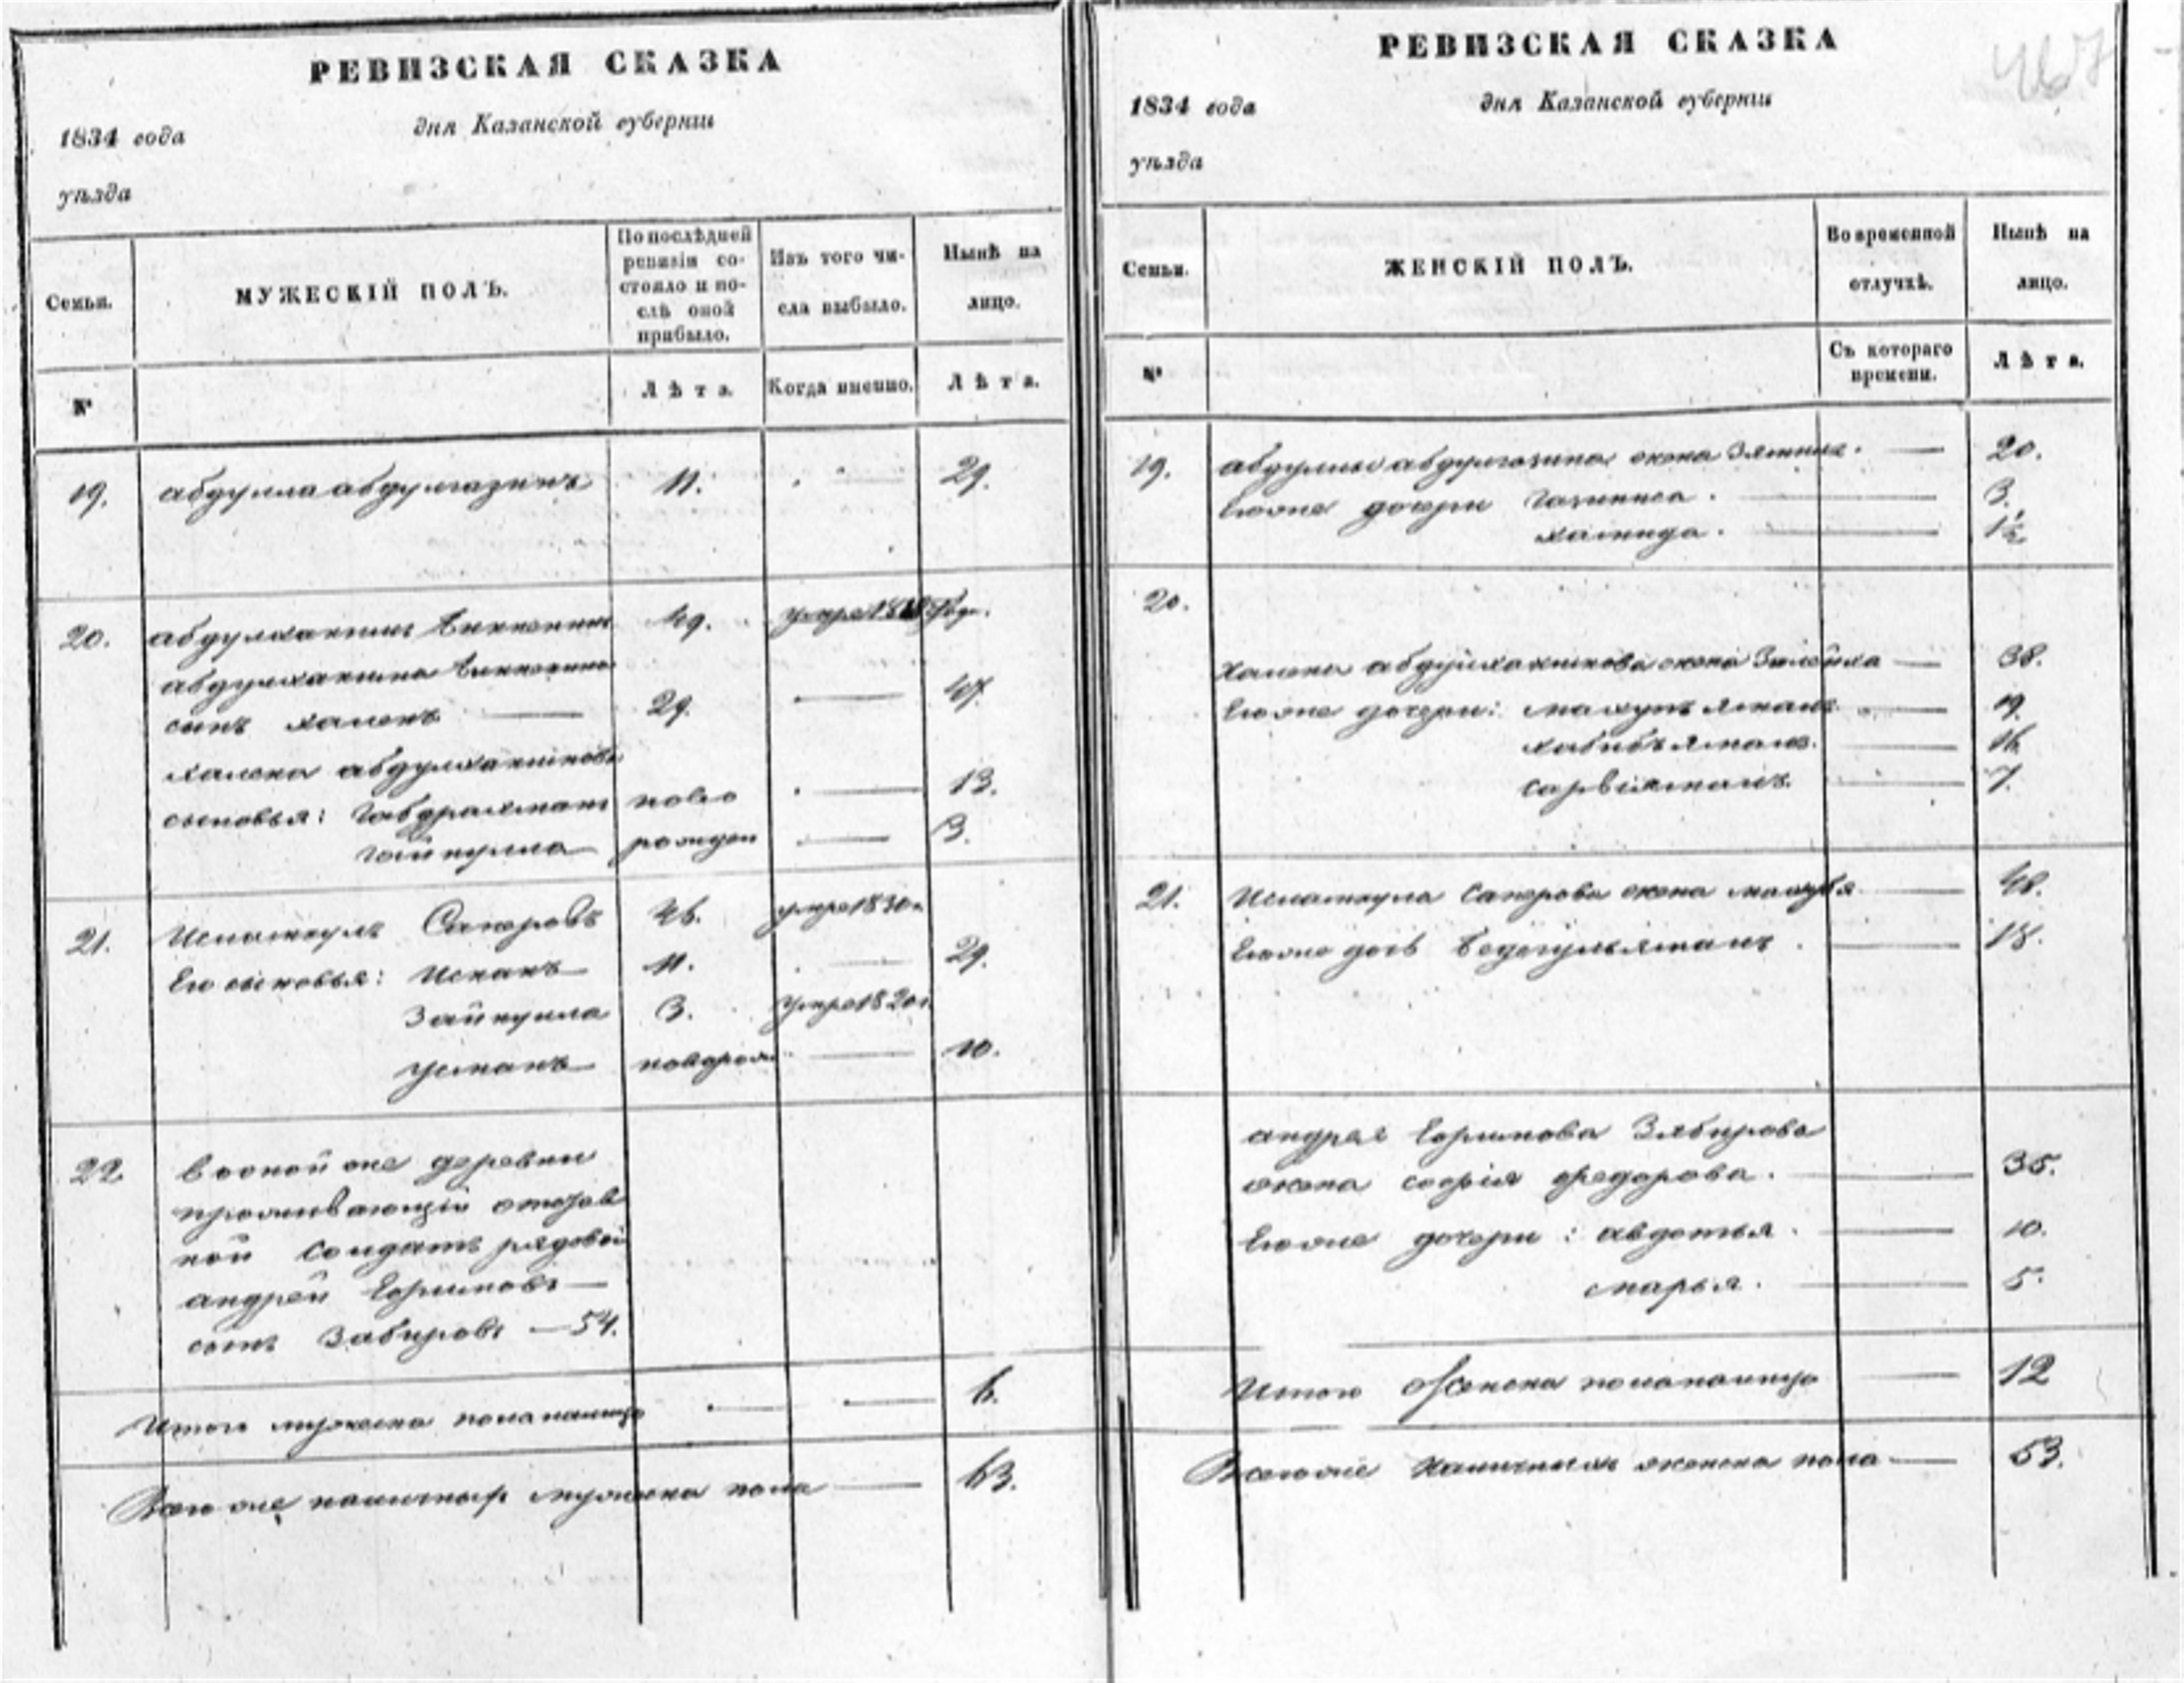 РЕВИЗСКАЯ СКАЗКА
1834 года
дня Казанской губернiи
уѣзда
Семьи.
МУЖЕСКIЙ ПОЛЪ.
По послѣдней ревизiи со-
стояло и по-
слѣ оной
прибыло.
Изъ того чи-
сла выбыло.
Нынѣ на
лицо.
№
Лѣта.
Когда именно.
Лѣта.
19. абдулла абдулгазинъ 11. 29.
20. абдулхакимъ 49. умре 18
абдулхакима
сынъ халекъ 29. 47.
халека абдулхакимова
сыновья: габдрахманъ ново 13.
гайнулла рожден 3.
21. Исламкулъ 46. умре 1830
Его сыновья: 11. 29.
Зайнулла 3. умре 1820
усманъ новорож 10.
22. в оной же деревни
проживающiй отстав
ной солдатъ рядовой
андрей Ефимовъ
сынъ Забировъ — 54.
Итого мужеска пола налицо 6.
Всего же наличныхъ мужеска пола 63.
РЕВИЗСКАЯ СКАЗКА
467
1834 года
дня Казанской губернiи
уѣзда
Семьи.
ЖЕНСКIЙ ПОЛЪ.
Во временной
отлучкѣ.
Нынѣ на
лицо.
№
Съ котораго
времени.
Лѣта.
19. абдуллы абдулгазина жена 20.
Ево же дочери 3.
хамида. 1½
20.
Халека абдулхакимова жена Зюлейха 38.
Ево же дочери: 19.
хабибъямалъ. 16
сарвiямалъ. 7.
21. Исламкула жена 48.
Ево же дочь 18.
андрея Ефимова Забирова
жена софiя федорова. 35.
Ево же дочери: авдотья. 10.
марья. 5.
Итого женска пола налицо 12
Всего же наличныхъ женска пола 53.